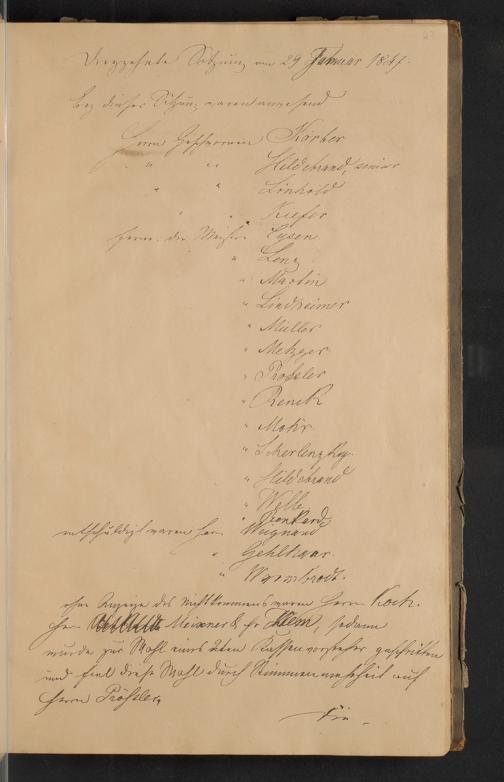 Dreyzehnte Sitzung am 29 Januar 1847.
Bey dieser Sitzung waren anwesend
Herrn Geschworenen Körber
" " Hildebrand, senior
" " Linhold
" " Kiefer
ferner: die Meister Eysen
" Lenz
" Martin
" Lindheimer
" Müller
" Metzger
" Prößler
" Renck
" Mohr
"
" Hildebrand
" Welb
"
entschuldigt waren Herr Weignand
" Gehlhaar
" Wrombrodt.
ohne Anzeige des Nichtkommens waren Herrn Koch.
Herr Meixner & Hr Klem, sodann
wurde zur Wahl eines 2ten Kassenvorsteher geschritten
und fiel diese Wahl durch Stimmenmehrheit auf
Herrn Prößler,